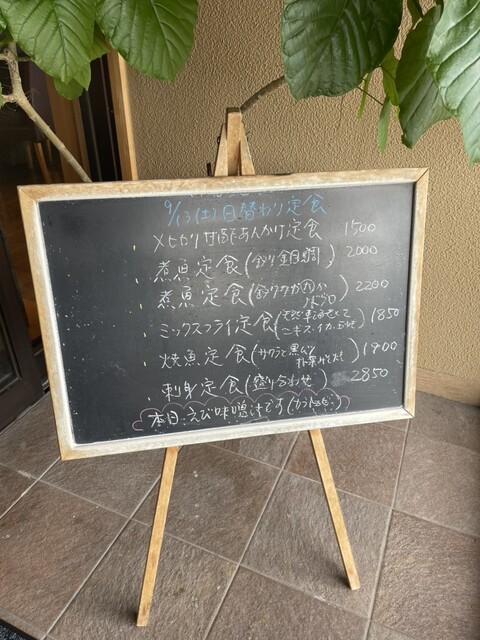 9/13(土)日替わり定食
メヒカリ甘酢あんかけ定食 1500
煮魚定食(釣り金目鯛) 2000
煮魚定食(釣クロムツ か ノドグロ) 2200
ミックスフライ定食( ニギス・イカ・ ) 1850
焼魚定食(サワラと黒ムツ ) 1900
刺身定食(盛り合わせ) 2850
本日えび味噌汁です